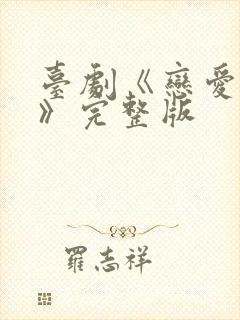 臺劇《戀愛
》完整版
羅志祥